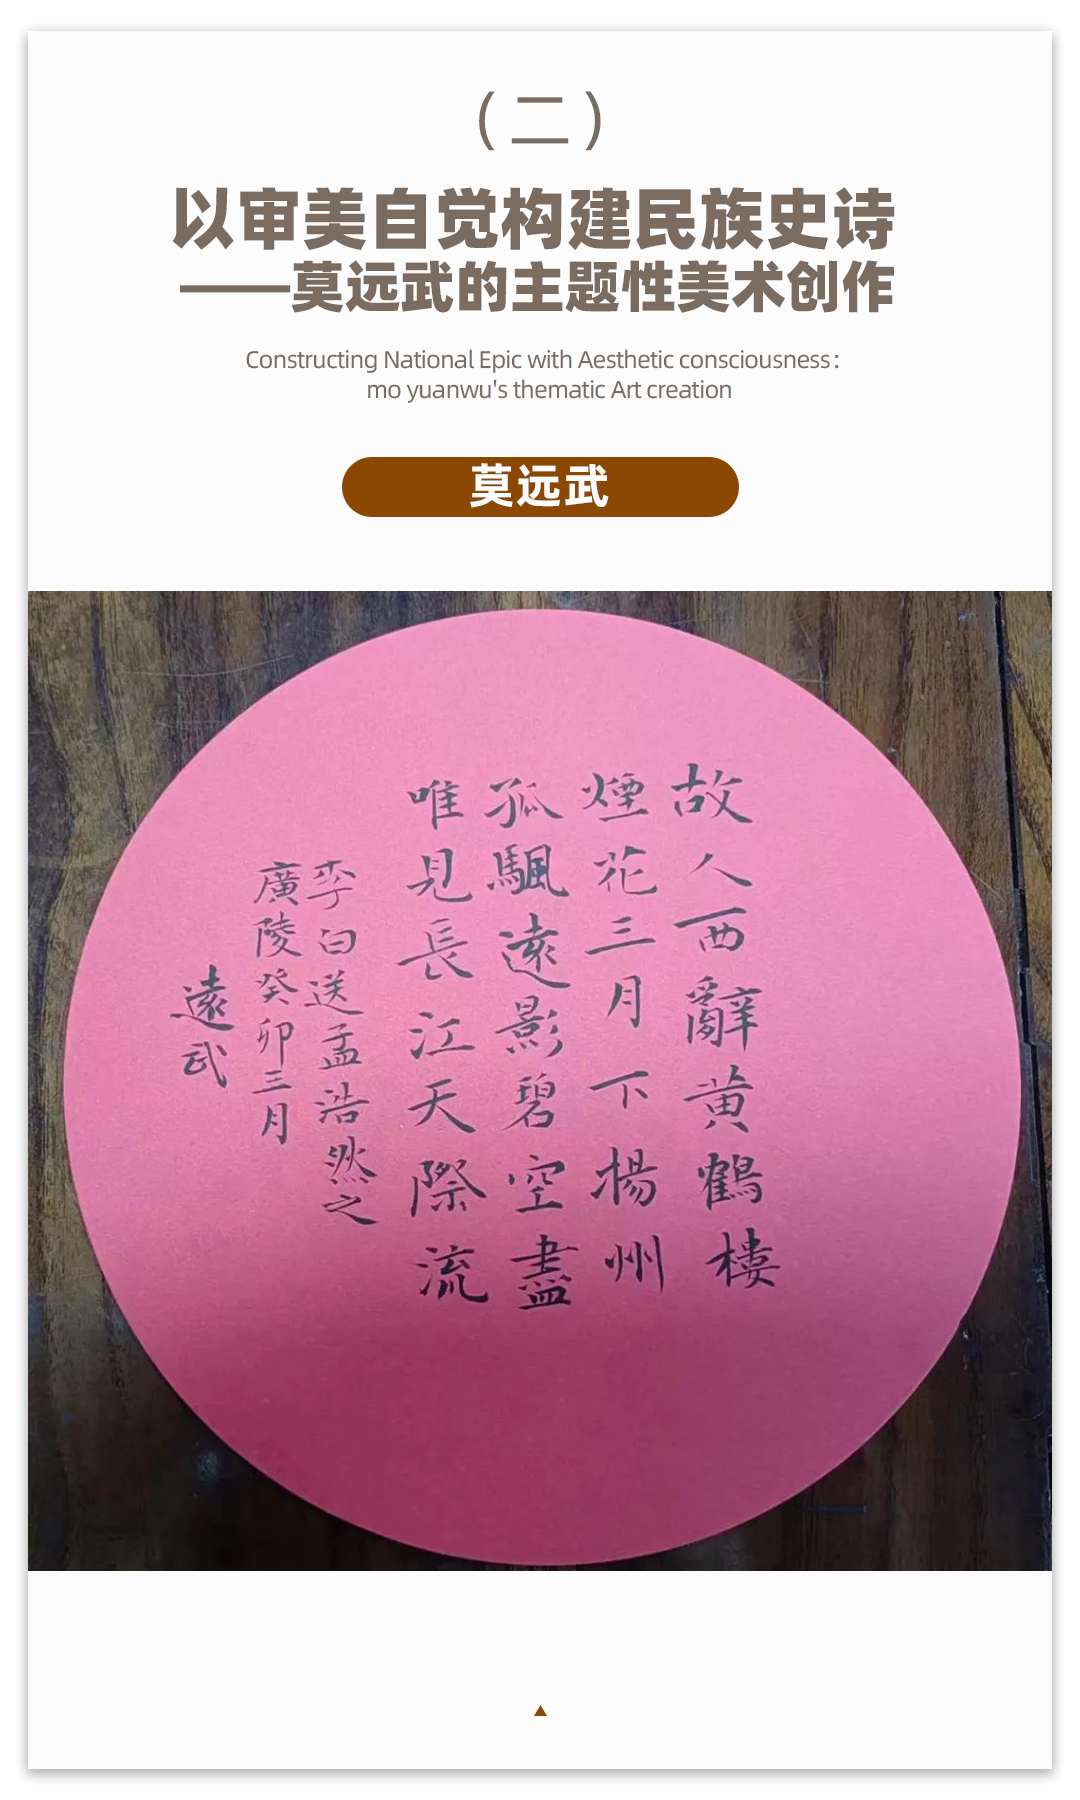 （二）
以审美自觉构建民族史诗
——莫远武的主题性美术创作
Constructing National Epic with Aesthetic consciousness：
mo yuanwu's thematic Art creation
莫远武
故人西辭黄鶴樓
煙花三月下揚州
孤颿遠影碧空盡
唯見長江天際流
李白送孟浩然之
廣陵癸卯三月
遠武